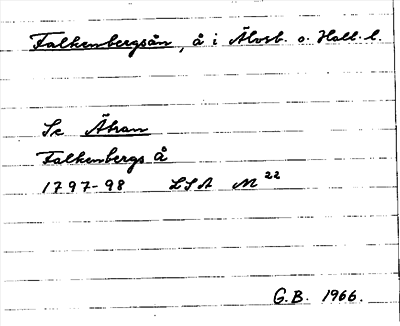 Falkenbergsån, å i Älvsb. o. Hall. l.
Se Ätran
Falkenbergs Å
1797-98 LSA M 22
G.B. 1966.